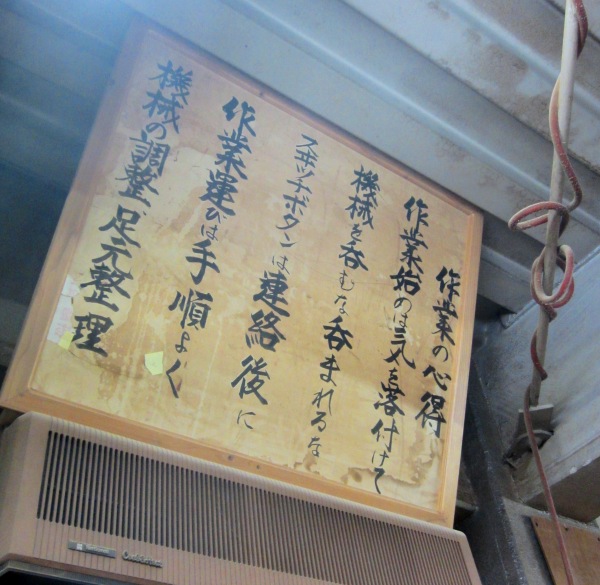 作業の心得
作業始めは気を落付けて
機械を呑むな呑まれるな
スヰッチボタンは連絡後に
作業運びは手順よく
機械の調整、足元整理